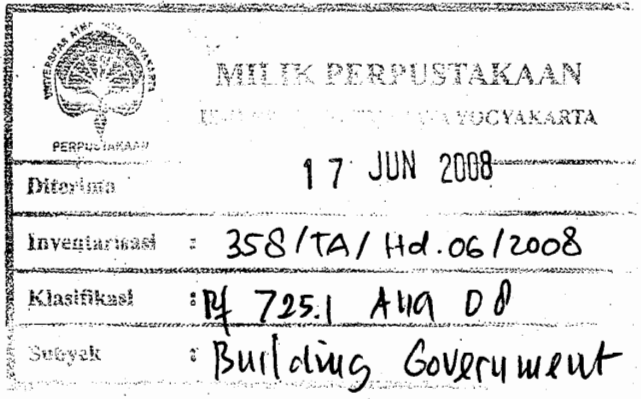 UNIVERSITAS ATMA JAYA YOGYAKARTA
PERPUSTAKAAN
MILIK PERPUSTAKAAN
UNIVERSITAS ATMA JAYA YOGYAKARTA
Diterima 17 JUN 2008
Inventarisasi : 358/TA/Hd.06/2008
Klasifikasi : Rf 725.1 08
Subyek : Building Government